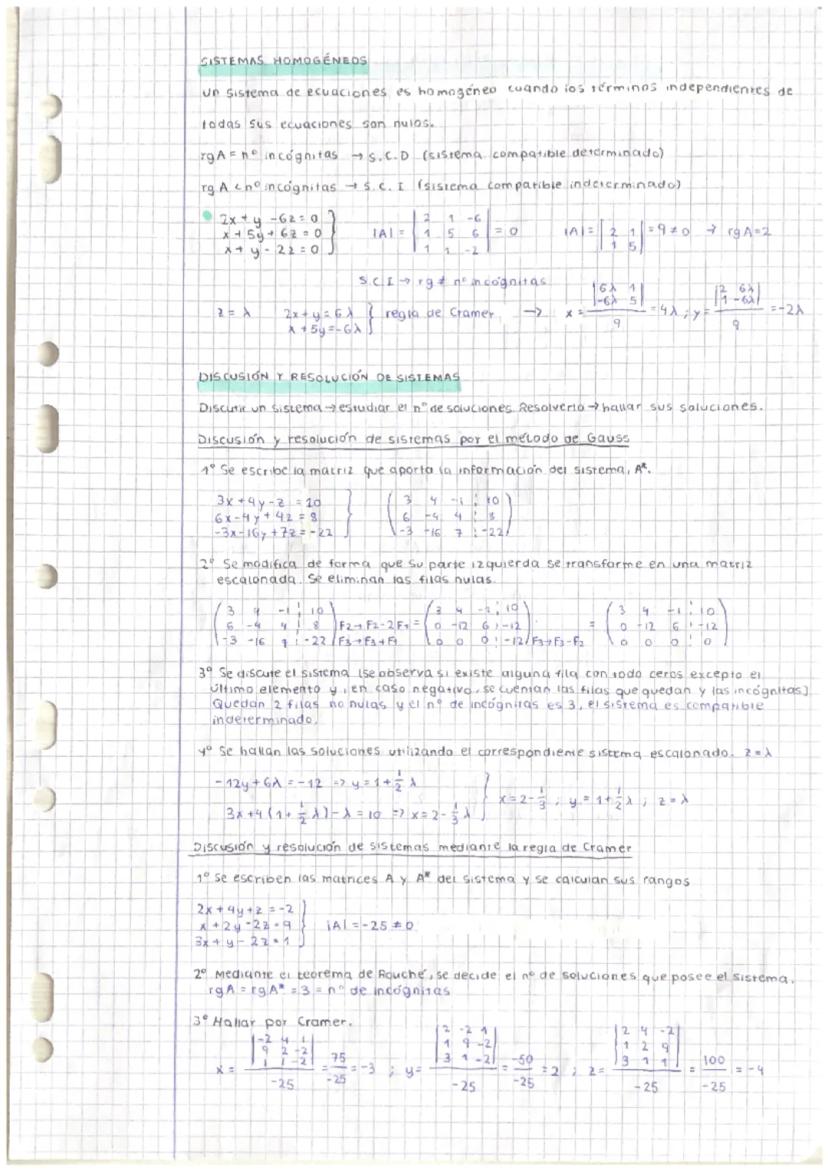 SISTEMAS HOMOGÉNEOS
un sistema de ecuaciones es homogéneo cuando los términos independientes de
todas sus ecuaciones son nulos.
rgA = nº incógnitas → S.C.D (sistema compatible determinado)
rg A < nº incógnitas → S.C.I (sistema compatible indeterminado)
2x + y - 6z = 0
x + 5y + 6z = 0
x + y - 2z = 0
|A| = | 2 1 -6 | 1 5 6 | 1 1 -2 | = 0
|A| = | 2 1 | 1 5 | = 9 ≠ 0 → rgA=2
S.C.I → rg ≠ nº incógnitas
z = λ
2x + y = 6λ
x + 5y = -6λ
} regla de Cramer →
x = | 6λ 1 | -6λ 5 | / 9 = 4λ ; y = | 2 6λ | 1 -6λ | / 9 = -2λ
DISCUSIÓN Y RESOLUCIÓN DE SISTEMAS
Discutir un sistema → estudiar el nº de soluciones. Resolverlo → hallar sus soluciones.
Discusión y resolución de sistemas por el método de Gauss
1º Se escribe la matriz que aporta la información del sistema, A*.
3x + 4y - z = 10
6x - 4y + 4z = 8
-3x - 16y + 7z = -22
( 3 4 -1 ¦ 10
6 -4 4 ¦ 8
-3 -16 7 ¦ -22 )
2º Se modifica de forma que su parte izquierda se transforme en una matriz
escalonada. Se eliminan las filas nulas.
( 3 4 -1 ¦ 10
6 -4 4 ¦ 8
-3 -16 7 ¦ -22 )
F2→F2-2F1
F3→F3+F1
= ( 3 4 -1 ¦ 10
0 -12 6 ¦ -12
0 0 0 ¦ -12 )
F3→F3-F2
= ( 3 4 -1 ¦ 10
0 -12 6 ¦ -12
0 0 0 ¦ 0 )
3º Se discute el sistema (se observa si existe alguna fila con todo ceros excepto el
último elemento y, en caso negativo, se cuentan las filas que quedan y las incógnitas)
Quedan 2 filas no nulas y el nº de incógnitas es 3, el sistema es compatible
indeterminado.
4º Se hallan las soluciones utilizando el correspondiente sistema escalonado. z = λ
-12y + 6λ = -12 => y = 1 + 1/2 λ
3x + 4 (1 + 1/2 λ) - λ = 10 => x = 2 - 1/3 λ
} x = 2 - 1/3 ; y = 1 + 1/2 λ ; z = λ
Discusión y resolución de sistemas mediante la regla de Cramer
1º Se escriben las matrices A y A* del sistema y se calculan sus rangos
2x + 4y + z = -2
x + 2y - 2z = 9
3x + y - 2z = 1
|A| = -25 ≠ 0
2º Mediante el teorema de Rouché, se decide el nº de soluciones que posee el sistema.
rgA = rgA* = 3 = nº de incógnitas
3º Hallar por Cramer.
x = | -2 4 1 | 9 2 -2 | 1 1 -2 | / -25 = 75 / -25 = -3 ; y = | 2 -2 1 | 1 9 -2 | 3 1 -2 | / -25 = -50 / -25 = 2 ; z = | 2 4 -2 | 1 2 9 | 3 1 1 | / -25 = 100 / -25 = -4